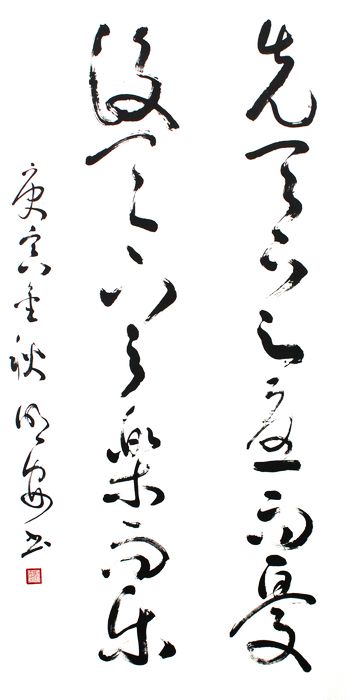 先天下之憂而憂
後天下之樂而乐
庚寅金秋 书